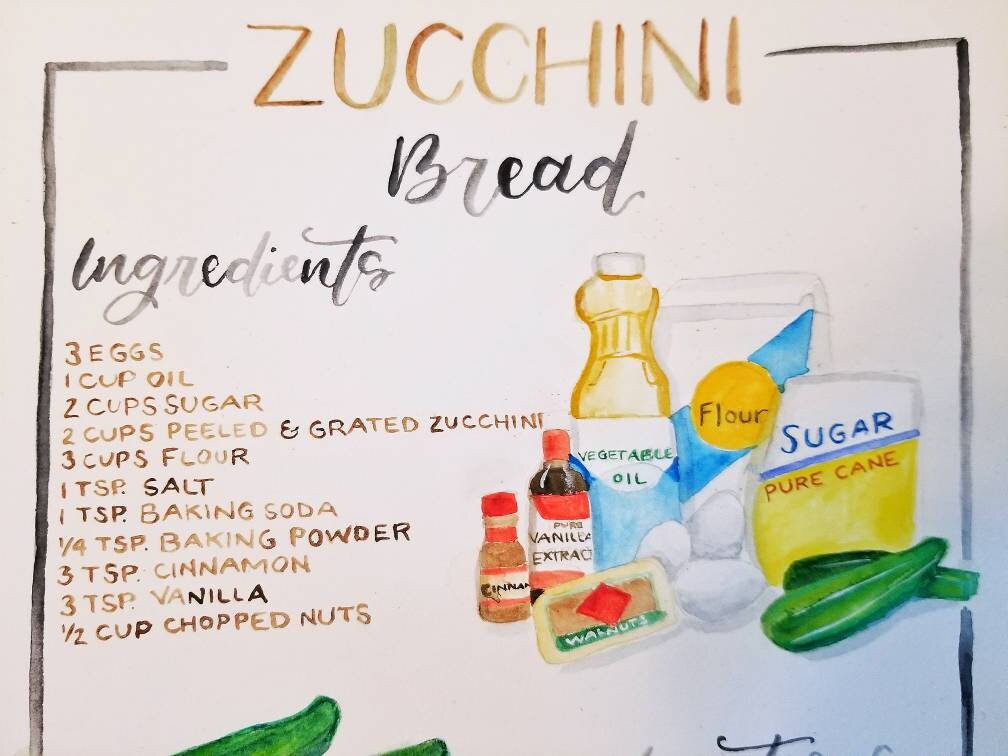 ZUCCHINI
Bread
Ingredients
3 EGGS
1 CUP OIL
2 CUPS SUGAR
2 CUPS PEELED & GRATED ZUCCHINI
3 CUPS FLOUR
1 TSP. SALT
1 TSP. BAKING SODA
1/4 TSP. BAKING POWDER
3 TSP. CINNAMON
3 TSP. VANILLA
1/2 CUP CHOPPED NUTS
VEGETABLE
OIL
Flour
SUGAR
PURE CANE
PURE
VANILLA
EXTRACT
CINNAM
WALNUTS